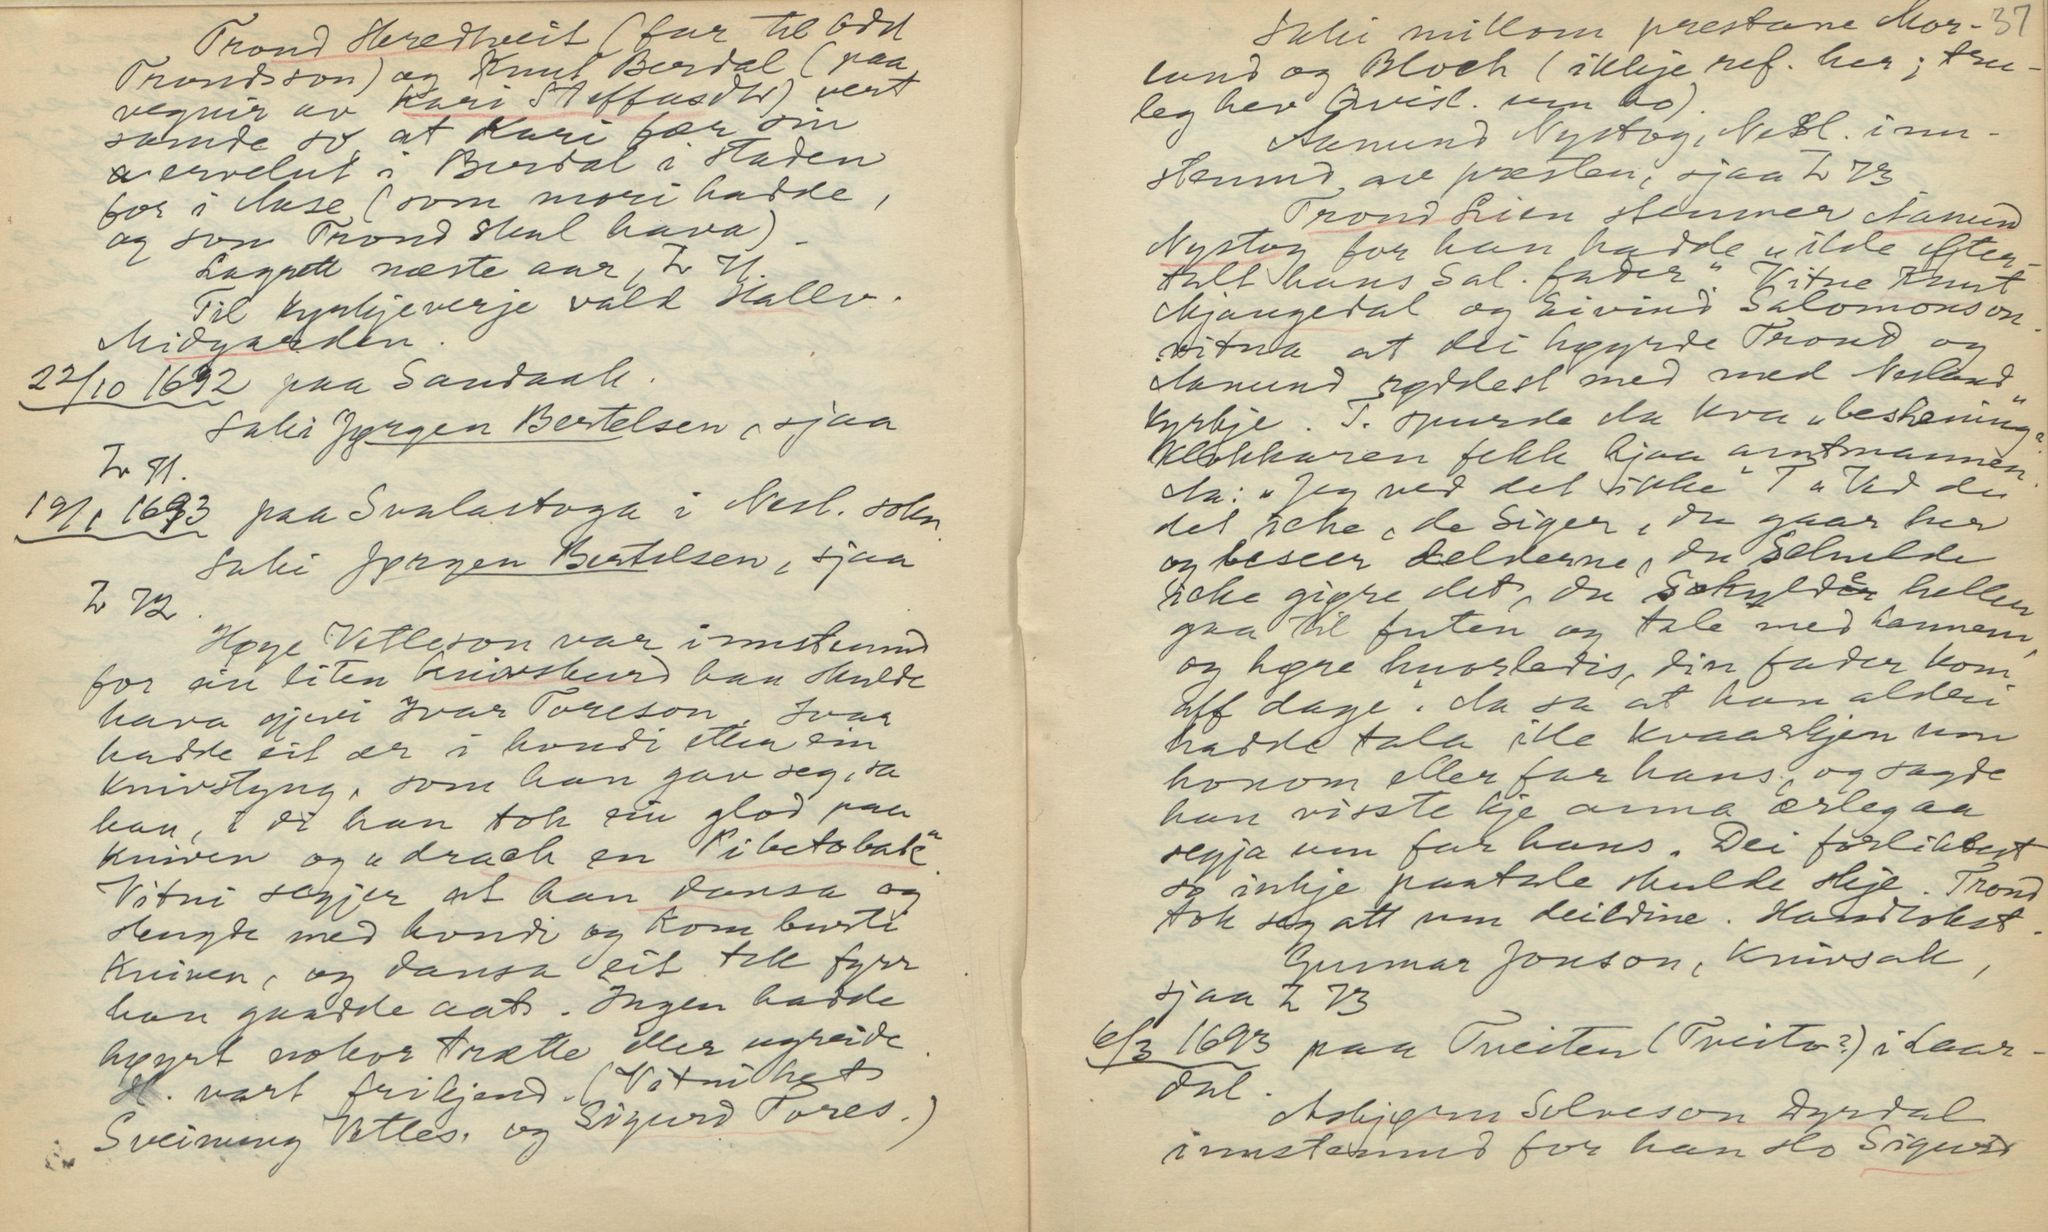 Trond Heredtveit (far til Odd
Trondsson) og Knut Berdal (paa
vegnir av Kari Steffasdtr) vert
samde so, at Kari fær sin
ervelut i Berdal i staden
for i Aase (som mori hadde,
og som Trond skul hava).
Lagrett næste aar, L 71.
Til kyrkjeverje vald Hallv.
Midgarden.
22/10 1692 paa Sandaak.
Saki Jørgen Bertelsen, sjaa
L 71.
19/1 1693 paa Svalastoga i Nesl. sokn
Saki Jørgen Bertelsen, sjaa
L 72.
Høge Vetleson var innstemnd
for ein liten knivskurd han skulde
hava gjevi Ivar Toreson. Ivar
hadde eit ær i hondi etter ein
knivstyng, som han gav seg, sa
han, i di han tok ein glod paa
kniven og „drach en Pibetobak“.
Vitni segjer at han dansa og
slengde med hondi og kom burti
kniven, og dansa eit tek fyrr
han gaadde aat. Ingen hadde
høyrt nokor trætte eller ugreide.
H. vart frikjend. (Vitni het
Sveinung Vetles. og Sigurd Tores.)
37
Saki millom prestane Mor-
lund og Bloch (ikkje ref. her; tru-
leg hev Qvisl. um ho).
Aamund Nystog, Nesl. inn-
stemnd av presten, sjaa L 73
Trond Lien stemner Aamund
Nystog for han hadde „ilde efter-
talt hans Sal. fader“. Vitne Knut
Mjaugedal og Eivind Salomonson
vitna at dei høyrde Trond og
Aamund røddest med med Nesland
kyrkje. T. spurde Aa kva „beskening“
klokkaren fekk hjaa amtmannen.
Aa: „Jeg ved det ikke“ T „Ved du
det icke, de Siger, du gaar her
og beseer delderne, du Schulde
icke giøre det, du Schylde heller
gaa til futen og tale med hannem,
og høre huorledis, din fader kom
aff dage“. Aa sa at han aldri
hadde tala ille kvaarkjen um
honom eller far hans, og sagde
han visste kje anna ærleg aa
segja um far hans. Dei forliktest
so inkje paatale skulde skje. Trond
tok seg att um deildine. Handtokst.
Gunnar Jonson, knivsak,
sjaa L 73
6/3 1693 paa Tveiten (Tveito?) i Laar-
dal.
Asbjørn Solveson Dyrdal
innstemnd for han slo Sigurd